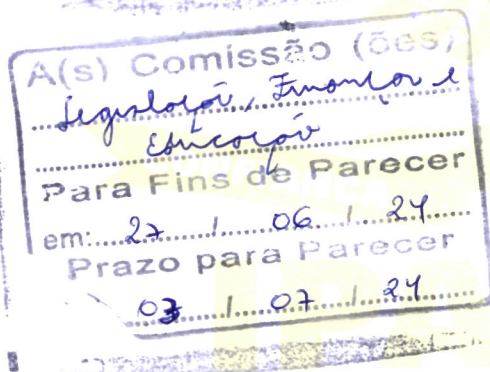 A(s) Comissão (ões)
Legislação, Finanças e
Educação
Para Fins de Parecer
em: 27 / 06 / 24
Prazo para Parecer
03 / 07 / 24